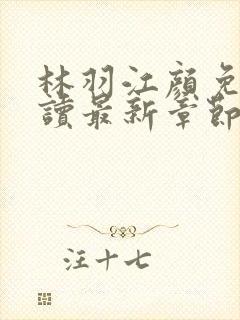 林羽江顏免
讀最新章節
汪十七